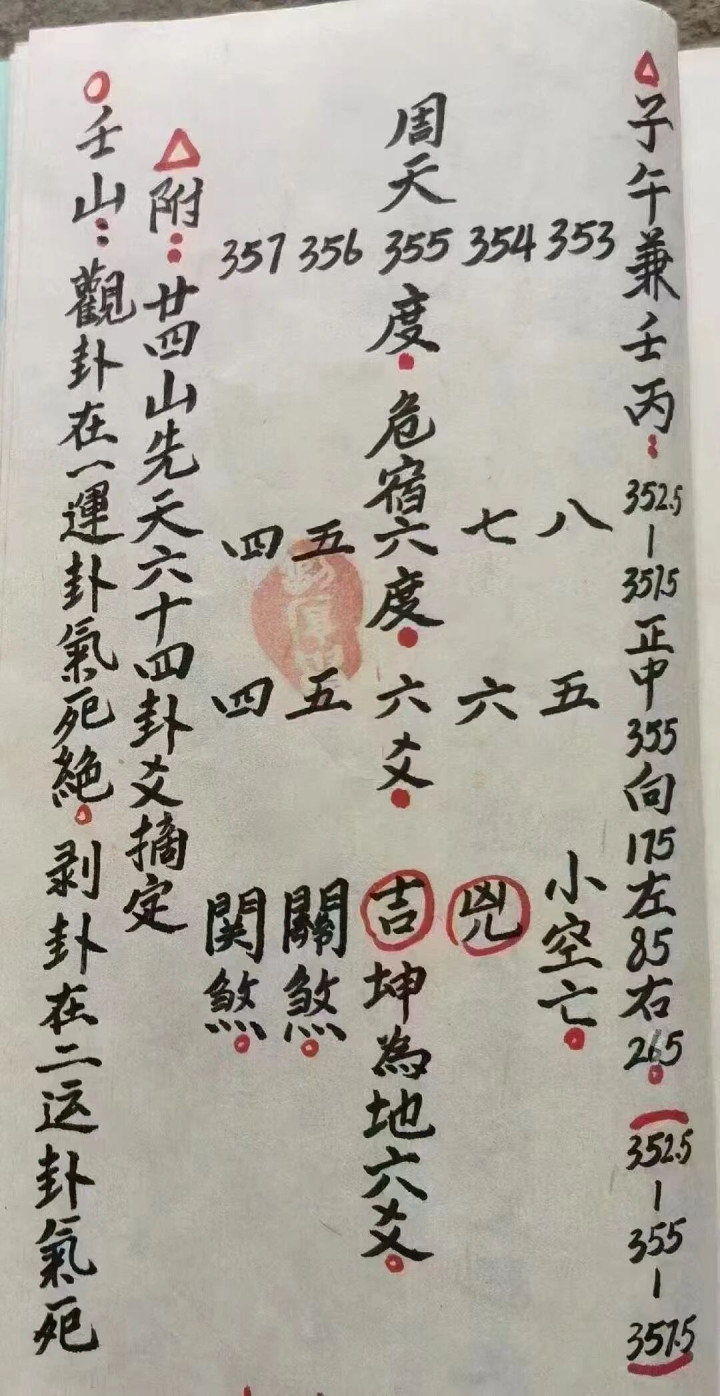 △子午兼壬丙：352.5—357.5正中355向175左85右265。(352.5—355—357.5)
353八五小空亡。
354七六兇
周天355度。危宿六度。六爻。吉坤為地六爻。
356五五關煞。
357四四関煞。
△附：廿四山先天六十四卦爻摘定
○壬山：觀卦在一運卦氣死絕。剥卦在二运卦氣死